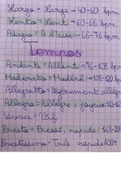 Largo = Large = 40-60 bpm
Lento = Lent = 60-66 bpm
Adagio = À l'aise = 66-76 bpm
Tempos
Andante = Allant = 76-108 bpm
Moderato = Modéré = 108-120 bp
Allegretto = légèrement allegr
Allegro = Allègre, joyeux
Vivace =
Presto = Pressé, rapide = 168-20
Prestissimo = Très rapide 200+